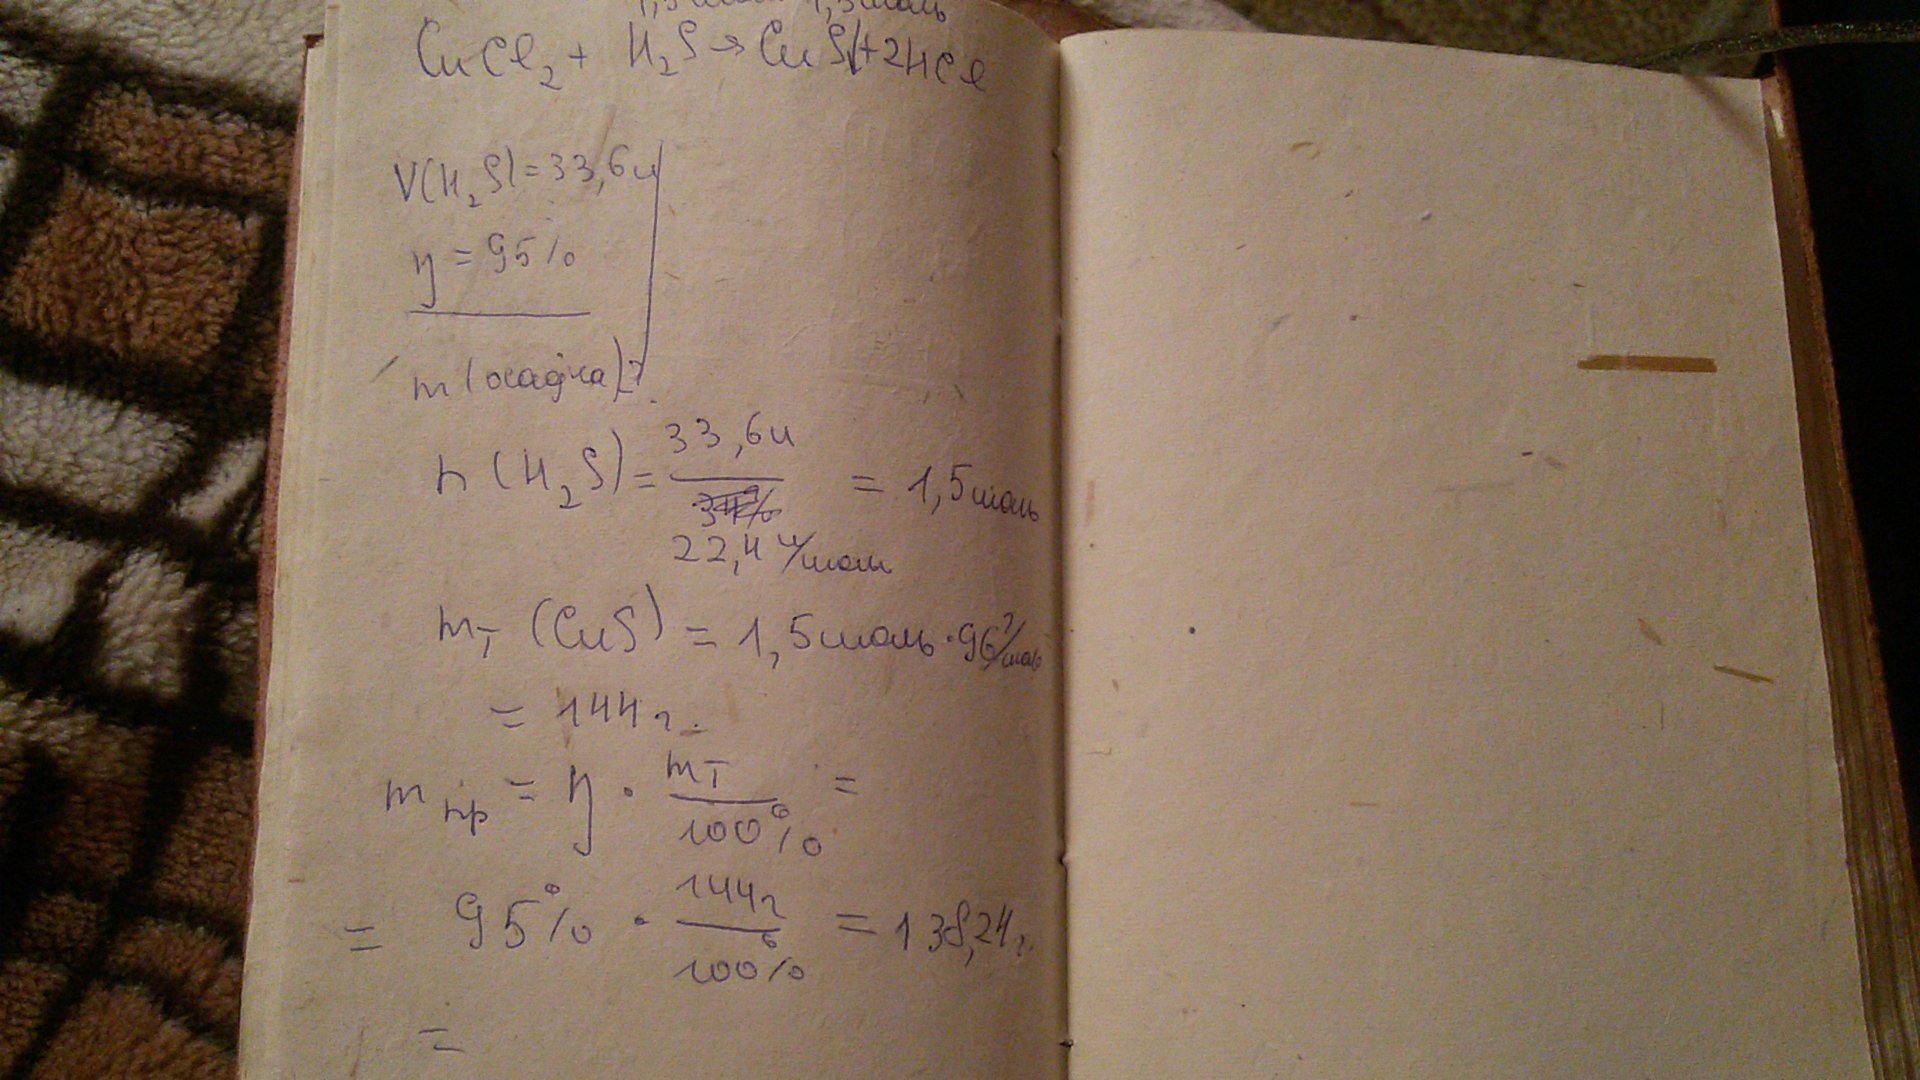 1,5моль 1,5моль
CuCl₂ + H₂S → CuS↓ + 2HCl
V(H₂S) = 33,6л
η = 95%
m (осадка) - ?
n (H₂S) = 33,6л / 22,4 л/моль = 1,5моль
mт (CuS) = 1,5моль · 96 г/моль
= 144 г.
m пр = η · mт / 100% =
= 95% · 144г / 100% = 138,24 г.
=